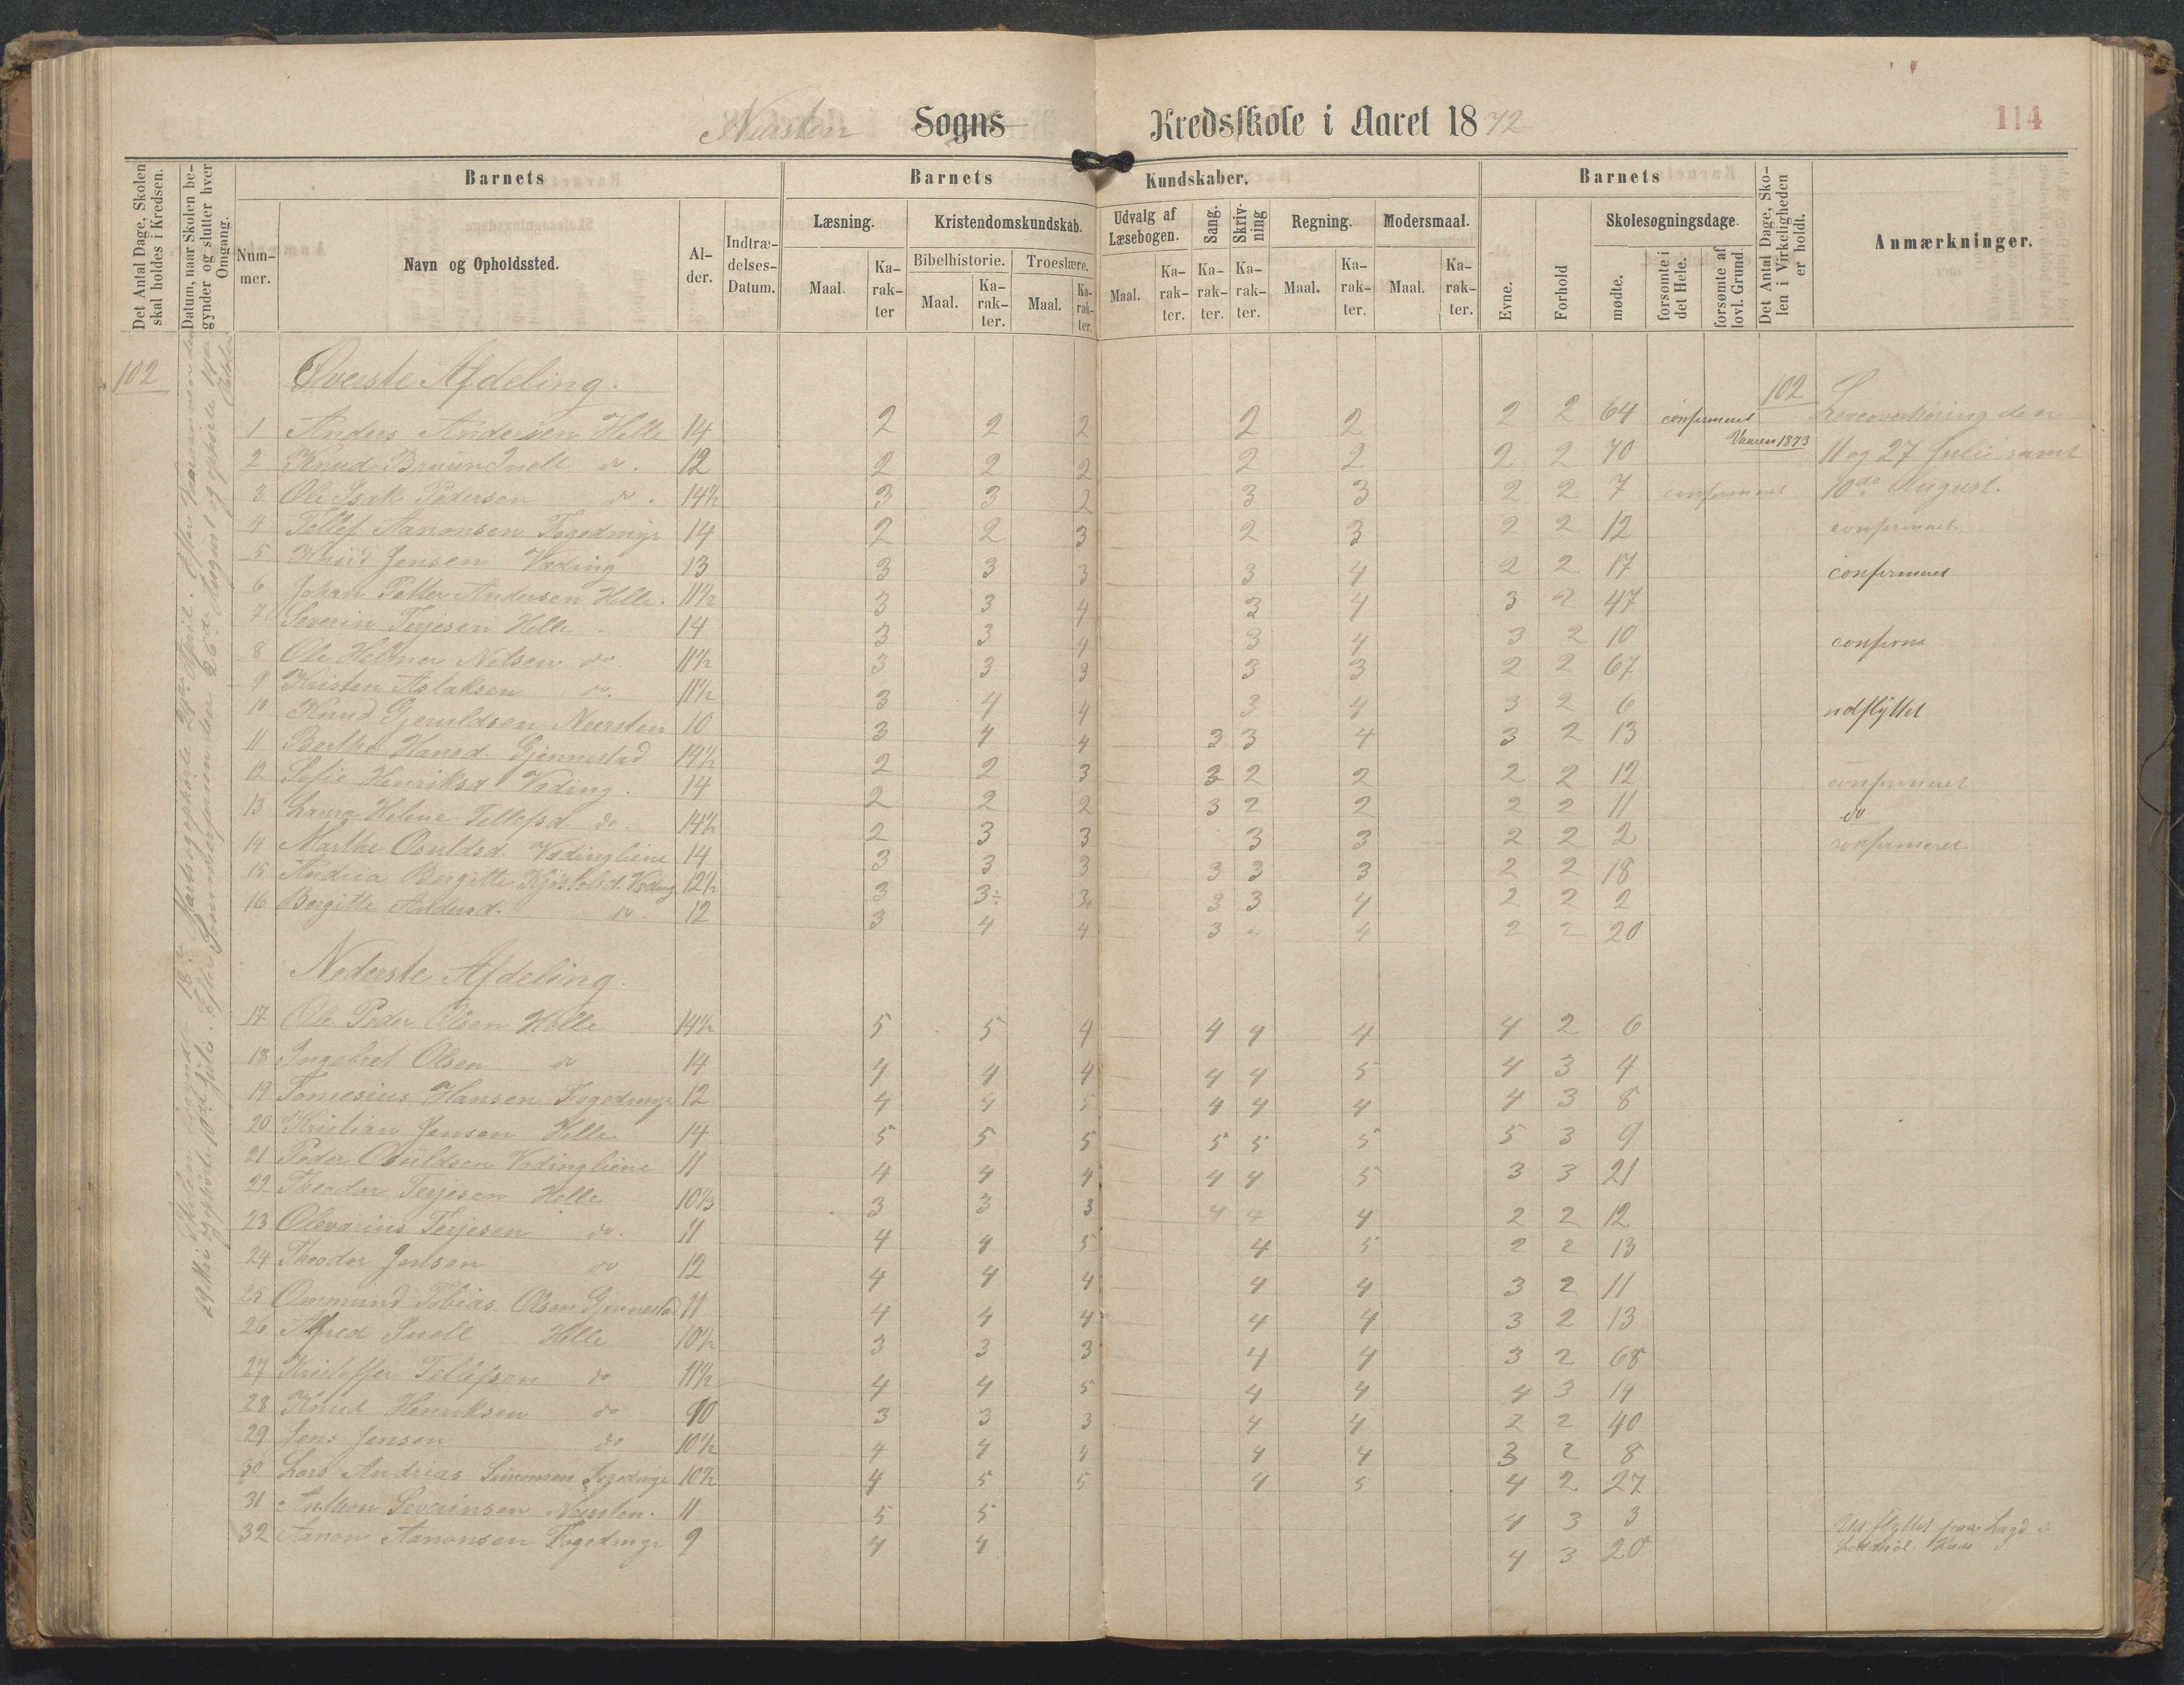 Neersten Sogns Kredsskole i Aaret 1872
114
Det Antal Dage, Skolen skal holdes i Kredsen.
Datum, naar Skolen begynder og slutter hver Omgang.
Barnets
Nummer.
Navn og Opholdssted.
Alder.
Indtrædelses-Datum.
Barnets Kundskaber.
Læsning.
Maal.
Karakter
Kristendomskundskab.
Bibelhistorie.
Maal.
Karakter.
Troeslære.
Maal.
Karakter.
Udvalg af Læsebogen.
Maal.
Karakter.
Sang.
Karakter.
Skrivning
Karakter.
Regning.
Maal.
Karakter.
Modersmaal.
Maal.
Karakter.
Barnets
Evne.
Forhold
Skolesøgningsdage.
mødte.
forsømte i det Hele.
forsømte af lovl. Grund
Det Antal Dage, Skolen i Virkeligheden er holdt.
Anmærkninger.
102
Øverste Afdeling.
102
1 Anders Andersen Helle 14 2 2 2 2 2 2 2 64 confirmeret Vaaren 1873
2 Knud Bruun Snell do. 12 2 2 2 2 2 2 2 70 11 og 27 Julie samt
3 Ole Isak Pedersen do. 14½ 3 3 2 3 3 2 2 7 confirmeret 10de August.
4 Tellef Aanonsen Fogedmyr 14 2 2 3 2 3 2 2 12 confirmeret
5 Knud Jensen Vading 13 3 3 3 3 4 2 2 17 confirmeret
6 Johan Petter Andersen Helle. 11½ 3 3 4 3 4 3 2 47
7 Severin Terjesen Helle 14 3 3 4 3 4 3 2 10 confirm
8 Ole Helmer Nilsen do. 11½ 3 3 3 3 3 2 2 67
9 Kristen Aslaksen do. 11½ 3 4 4 3 4 3 2 6 udflyttet
10 Knud Gjeruldsen Neersten 10 3 4 4 3 3 4 3 2 13
11 Berthe Hansd. Gjennestad 14½ 2 2 3 3 2 2 2 2 12 confirmeret
12 Sofie Henriksd Vading. 14 2 2 2 3 2 2 2 2 11 do
13 Laura Helene Tellefsd. do. 14½ 2 3 3 3 3 2 2 2 confirmeret.
14 Marthe Osuldsd. Vadingliene 14 3 3 3 3 3 3 2 2 18
15 Andrea Bergitte Kjøstolsd. Vading 12½ 3 3÷ 3 3 3 4 2 2 2
16 Bergitte Andersd. do. 12 3 4 4 3 4 4 2 2 20
Nederste Afdeling.
17 Ole Peder Olsen Helle 14½ 5 5 4 4 4 4 4 2 6
18 Ingebret Olsen do 14 4 4 4 4 4 5 4 3 4
19 Tomesius Hansen Fogedmyr 12 4 4 5 4 4 4 4 3 8
20 Kristian Jensen Helle 14 5 5 5 5 5 5 5 3 9
21 Peder Osuldsen Vadingliene 11 4 4 4 4 4 5 3 3 21
22 Theodor Terjesen Helle 10½ 3 3 3 4 4 4 2 2 12
23 Olevarius Terjesen do. 11 4 4 5 4 5 2 2 13
24 Theodor Jensen do 12 4 4 4 4 4 3 2 11
25 Ommund Tobias Olsen Gjennestad 11 4 4 4 4 4 3 2 13
26 Alfred Snell Helle 10½ 3 3 3 4 4 3 2 68
27 Kristoffer Tellefsen do 11½ 4 4 5 4 4 4 3 14
28 Knud Henriksen do 10 3 3 3 4 4 2 2 40
29 Jens Jensen do 10½ 4 4 4 4 4 3 2 8
30 Lars Andrias Simonsen Fogedmyr 10½ 4 5 5 4 5 4 2 27
31 Anthon Severinsen Neersten. 11 5 5 4 3 3
32 Aanon Aanonsen Fogedmyr 9 4 4 4 3 20